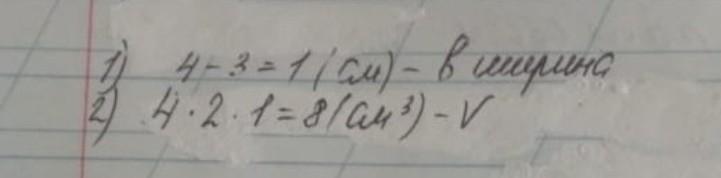 1) 4 - 3 = 1 (см) - в ширина
2) 4 · 2 · 1 = 8 (см³) - V